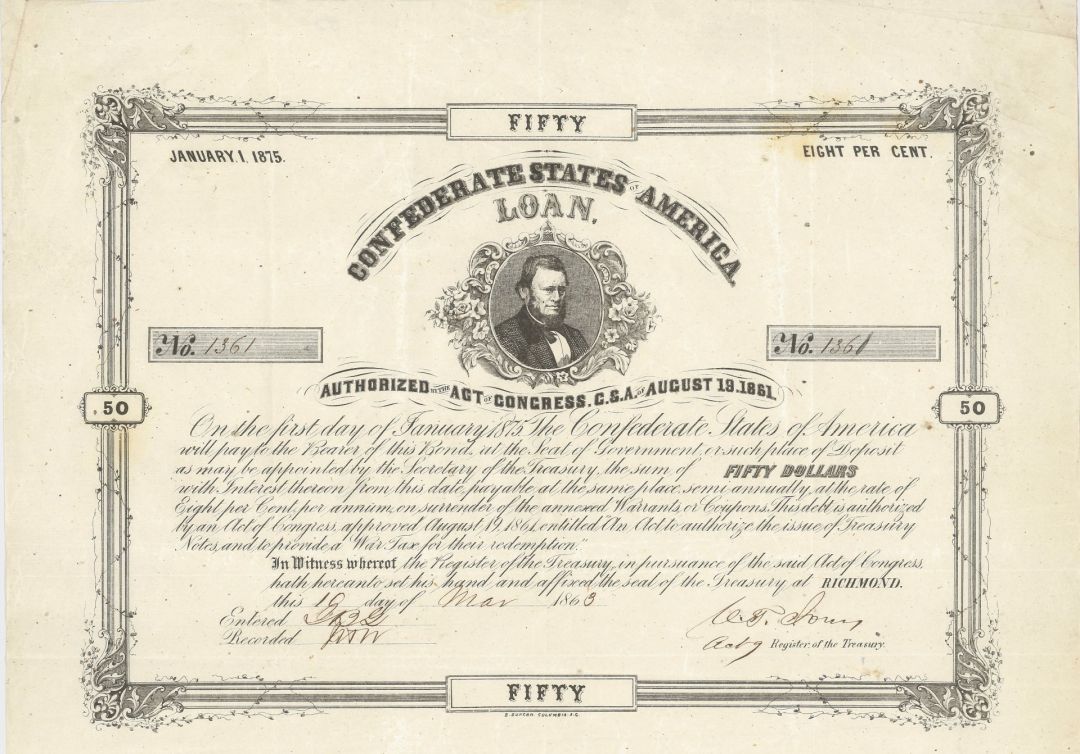 FIFTY
JANUARY.1, 1875.
EIGHT PER CENT.
CONFEDERATE STATES OF AMERICA,
LOAN,
No. 1361
No. 1361
AUTHORIZED BY THE ACT OF CONGRESS, C.S.A. OF AUGUST 19.1861.
50
50
On the first day of January 1875 The Confederate States of America
will pay to the Bearer of this Bond, at the Seat of Government, or such place of Deposit
as may be appointed by the Secretary of the Treasury, the sum of FIFTY DOLLARS
with Interest thereon from this date, payable at the same place, semi annually, at the rate of
Eight per Cent, per annum, on surrender of the annexed Warrants, or Coupons. This debt is authorized
by an Act of Congress, approved August 19, 1861, entitled "An Act to authorize the issue of Treasury
Notes, and to provide a War Tax for their redemption."
In Witness whereof, the Register of the Treasury, in pursuance of the said Act of Congress,
hath hereunto set his hand, and affixed the seal of the Treasury at RICHMOND.
this 10 day of Mar 1863
Entered
Recorded
Actg Register of the Treasury.
FIFTY
B. DUNCAN. COLUMBIA. S.C.